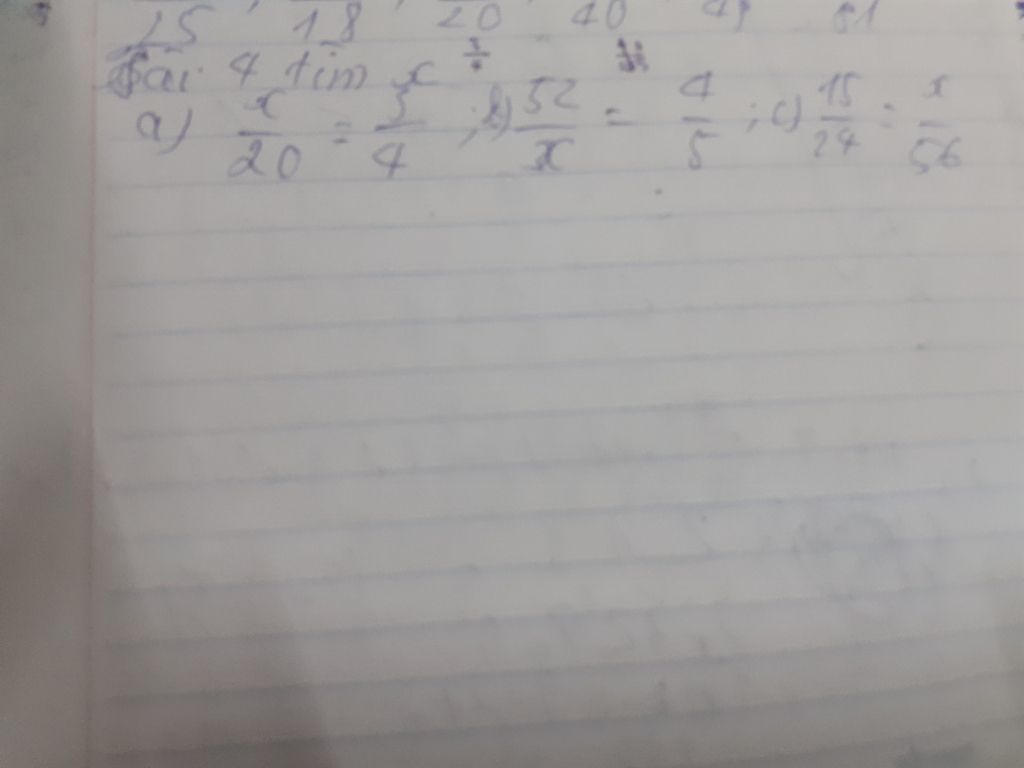 25 , 18 , 20 40 49 81
Bài 4 tìm x
a) x/20 = 5/4 ; b) 52/x = 4/5 ; c) 15/24 = x/56